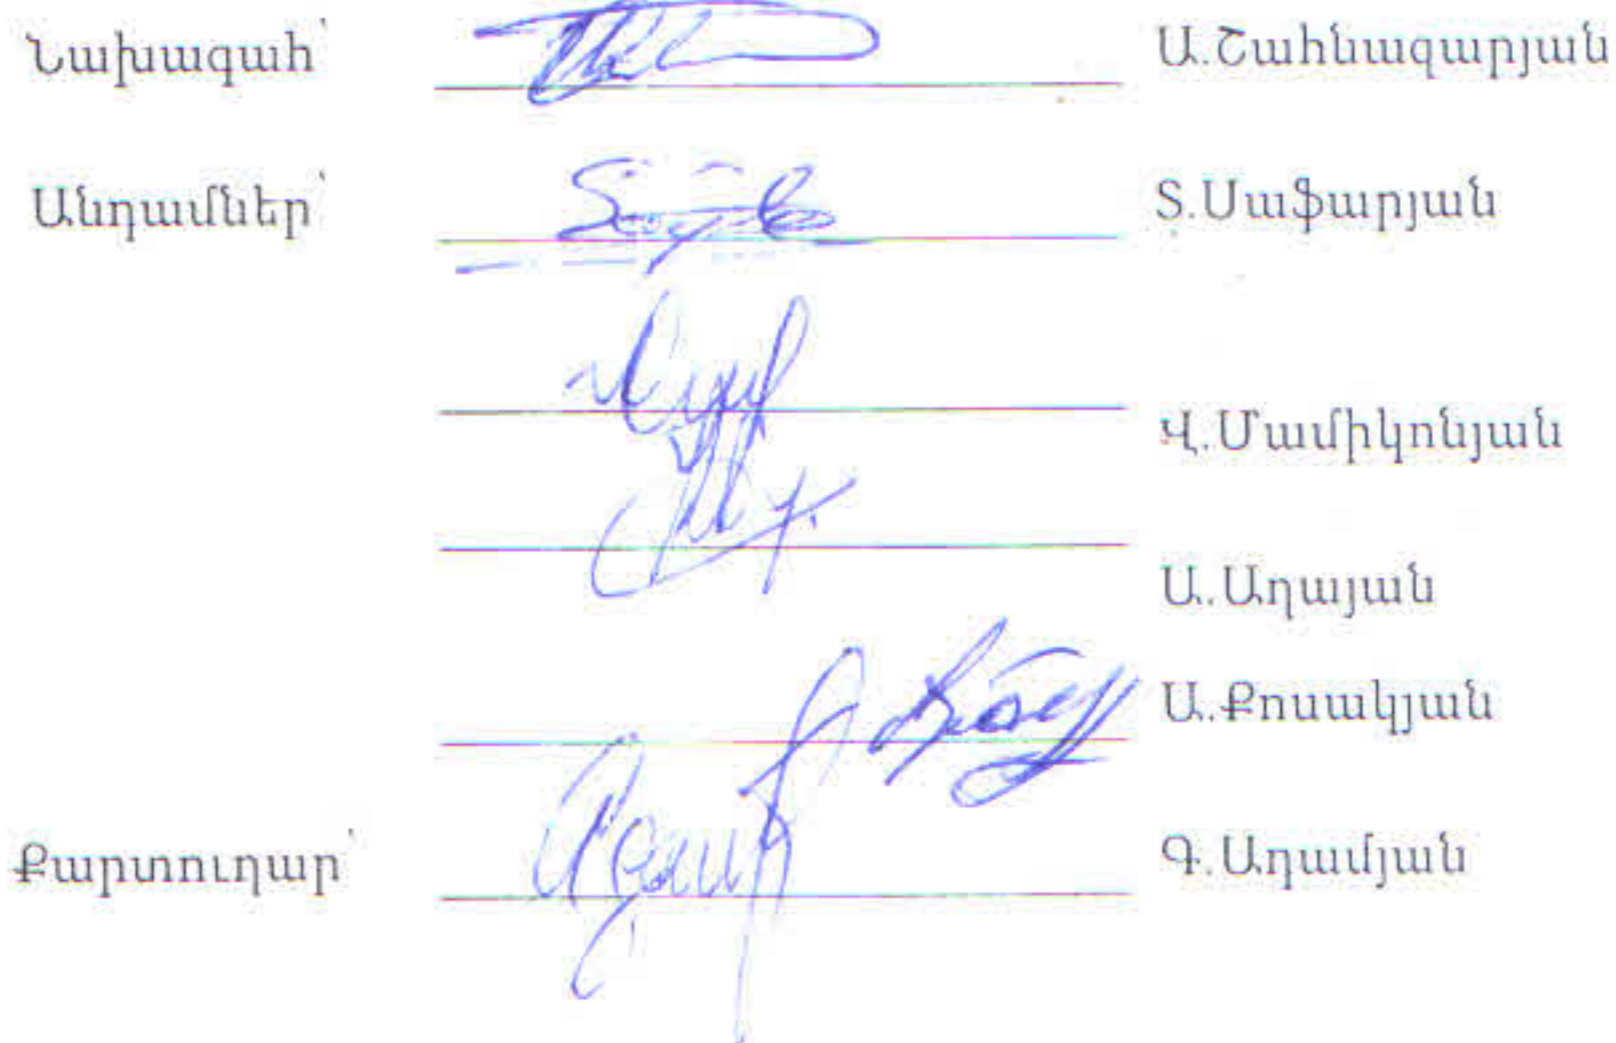 Նախագահ՝ Ա.Շահնազարյան
Անդամներ՝ Տ.Սաֆարյան
Վ.Մամիկոնյան
Ա.Աղայան
Ա.Քոսակյան
Քարտուղար՝ Գ.Աղամյան